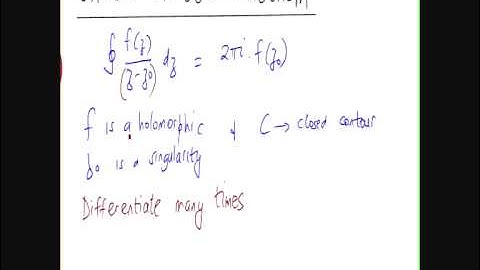 ∮ f(z)/(z-z0) dz = 2πi. f(z0)
f is a holomorphic & C → closed contour
z0 is a singularity
Differentiate many times